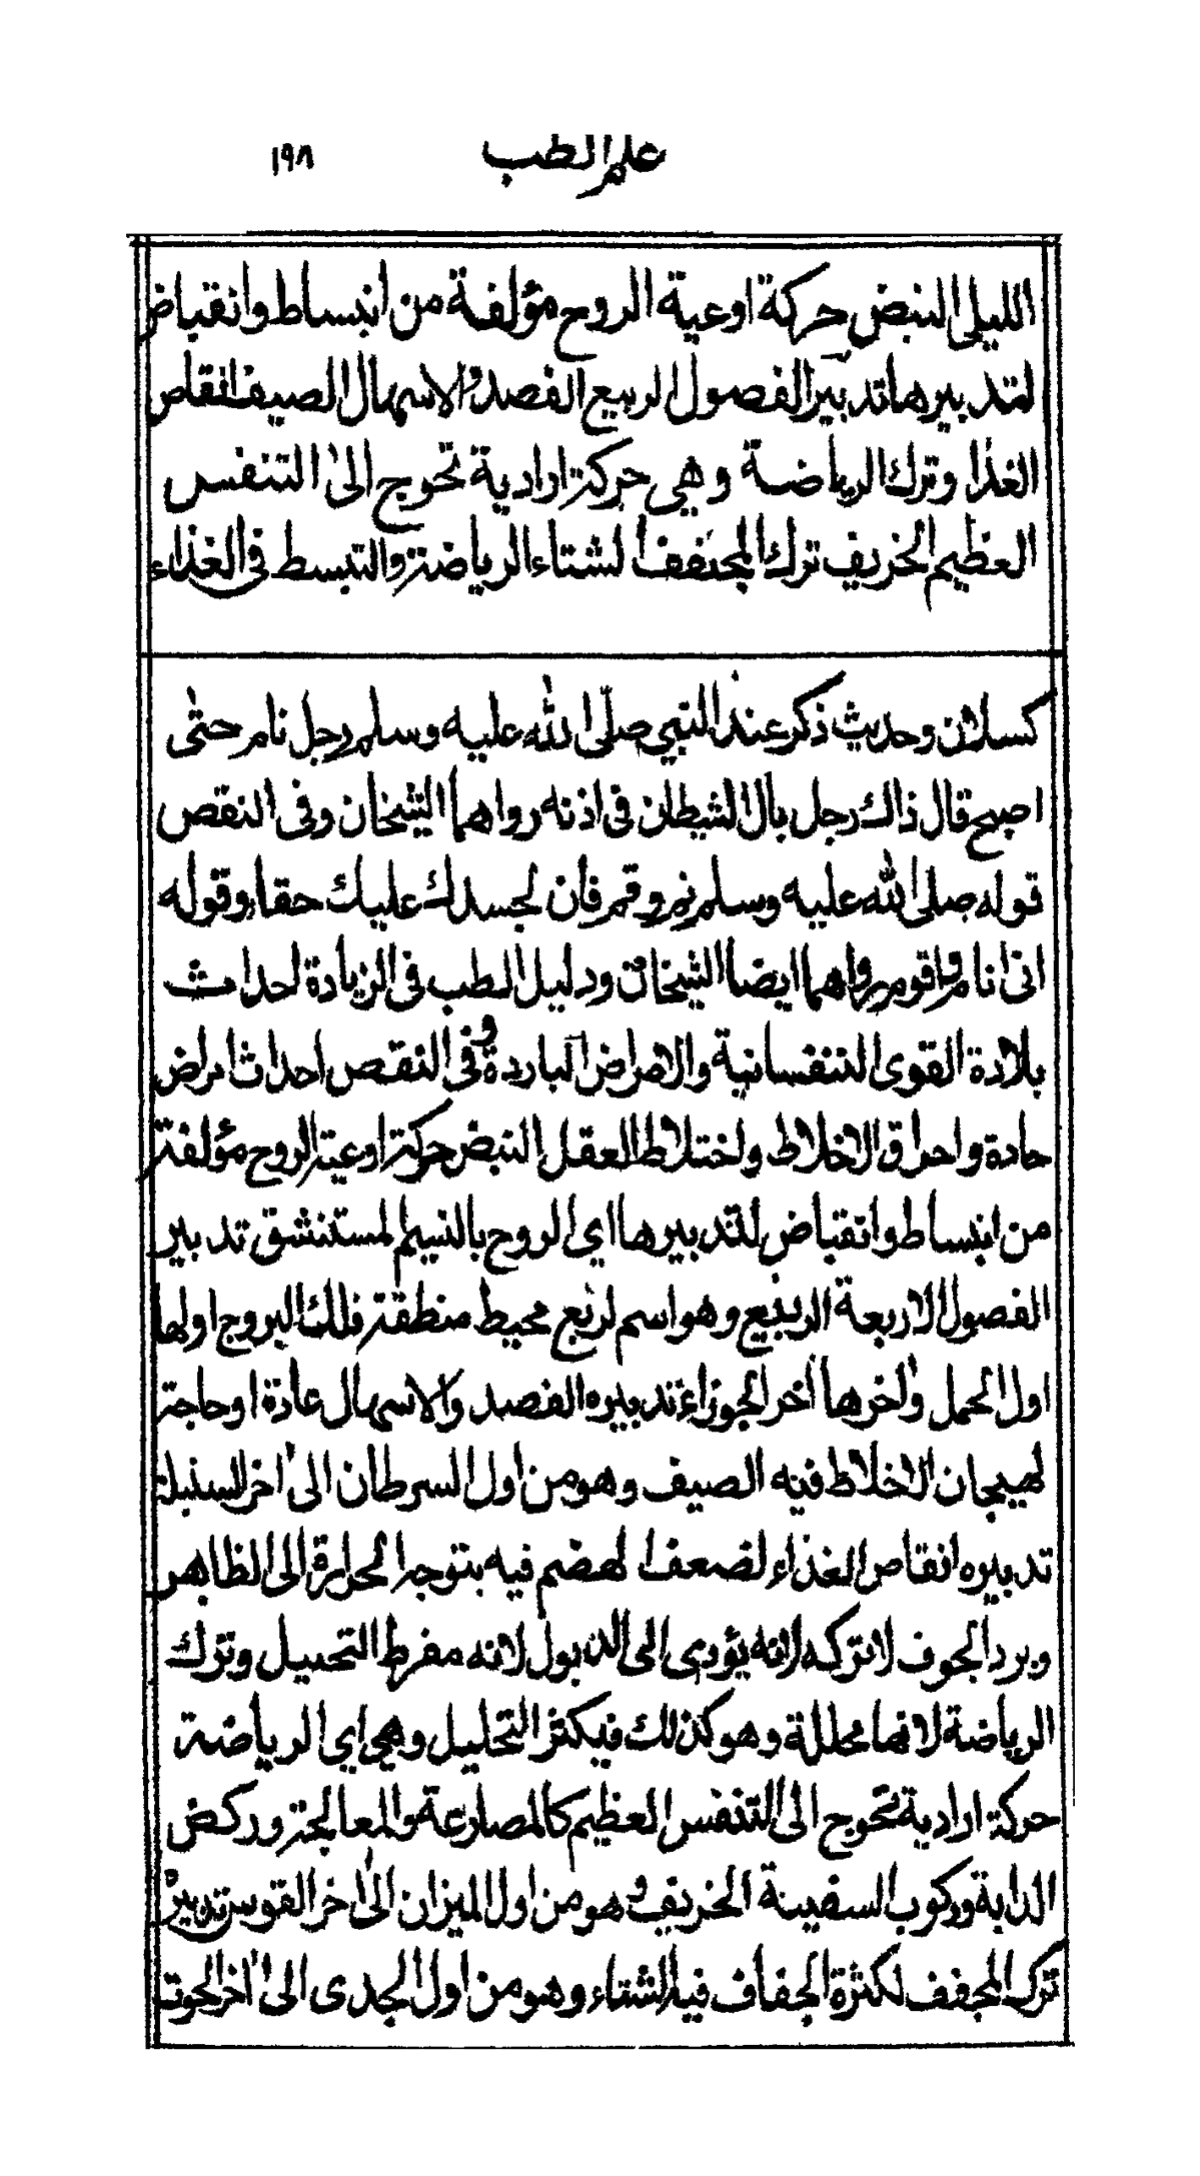 علم الطب ١٩٨
الليلى النبض حركة اوعية الروح مؤلفة من انبساط وانقباض
لتدبيرها تدبير الفصول الربيع الفصد والاسهال الصيف انقاص
الغذا وترك الرياضة وهي حركة ارادية تحوج الى التنفس
العظيم الخريف ترك المجفف الشتاء الرياضة والتبسط فى الغذاء
كسلان وحديث ذكر عند النبي صلى الله عليه وسلم رجل نام حتى
اصبح قال ذاك رجل بال الشيطان فى اذنه رواهما الشيخان وفى النقص
قوله صلى الله عليه وسلم نم وقم فان لجسدك عليك حقا وقوله
انى انام واقوم رواهما ايضا الشيخان ودليل الطب فى الزيادة احداث
بلادة القوى النفسانية والامراض الباردة وفى النقص احداث امراض
حادة واحراق الاخلاط واختلاط العقل النبض حركة اوعية الروح مؤلفة
من انبساط وانقباض لتدبيرها اي الروح بالنسيم المستنشق تدبير
الفصول الاربعة الربيع وهو اسم لربع محيط منطقة فلك البروج اولها
اول الحمل واخرها آخر الجوزاء تدبيره الفصد والاسهال عادة اوحاجة
لهيجان الاخلاط فيه الصيف وهو من اول السرطان الى اخر السنبلة
تدبيره انقاص الغذاء لضعف الهضم فيه بتوجه الحرارة الى الظاهر
وبرد الجوف لا تركه لانه يؤدى الى الذبول لانه مفرط التحليل وترك
الرياضة لانها محللة وهو كذلك فيكثر التحليل وهي اي الرياضة
حركة ارادية تحوج الى التنفس العظيم كالمصارعة والمعالجة وركض
الدابة وركوب السفينة الخريف وهو من اول الميزان الى اخر القوس تدبيره
ترك المجفف لكثرة الجفاف فيه الشتاء وهو من اول الجدى الى اخر الحوت